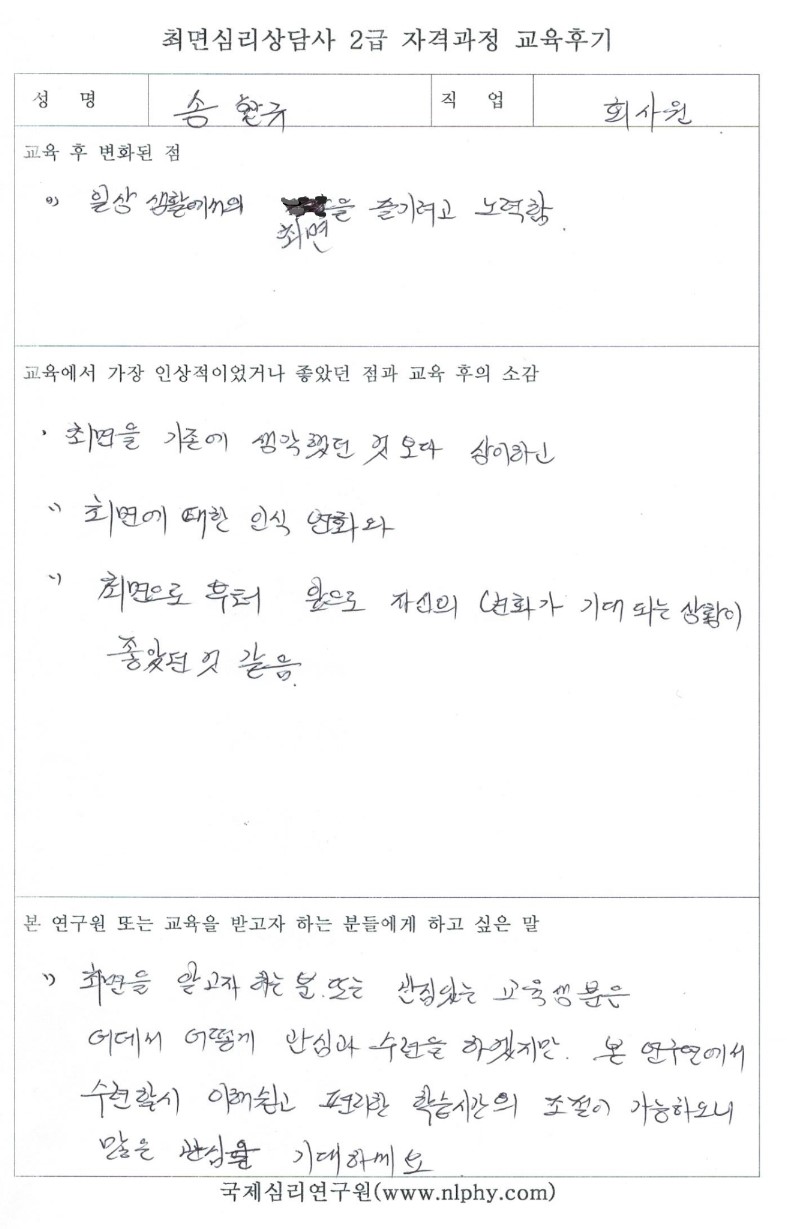 최면심리상담사 2급 자격과정 교육후기
성 명 송 직 업 회사원
교육 후 변화된 점
일상 생활에서의 을 즐기려고 노력함.
최면
교육에서 가장 인상적이었거나 좋았던 점과 교육 후의 소감
· 최면을 기존에 생각했던 것 보다 상이하고
") 최면에 대한 인식 변화와
") 최면으로 부터 앞으로 자신의 변화가 기대 되는 상황이
좋았던 것 같음.
본 연구원 또는 교육을 받고자 하는 분들에게 하고 싶은 말
") 최면을 알고자 하는 분. 또는 관심있는 교육생 분은
어데서 어떻게 관심과 수련을 하겠지만. 본 연구원에서
수련할시 이해쉽고 편리한 학습시간의 조절이 가능하오니
많은 관심을 기대하세요
국제심리연구원(www.nlphy.com)